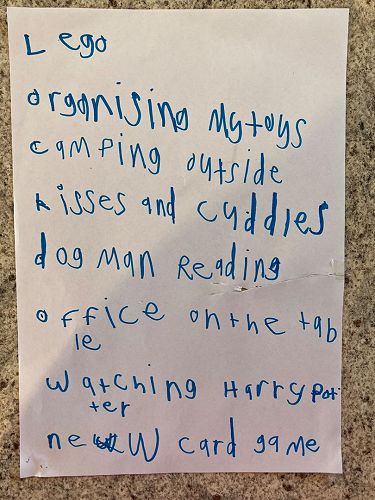 Lego
organising My toys
camping outside
kisses and cuddles
dog Man Reading
office on the tab
le
watching Harry pot
ter
new card game